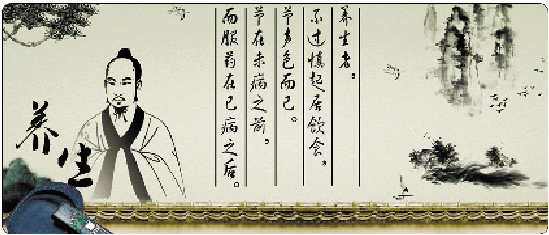 养生者。
不过慎起居饮食。
节声色而已。
节在未病之前。
而服药在已病之后。
养生